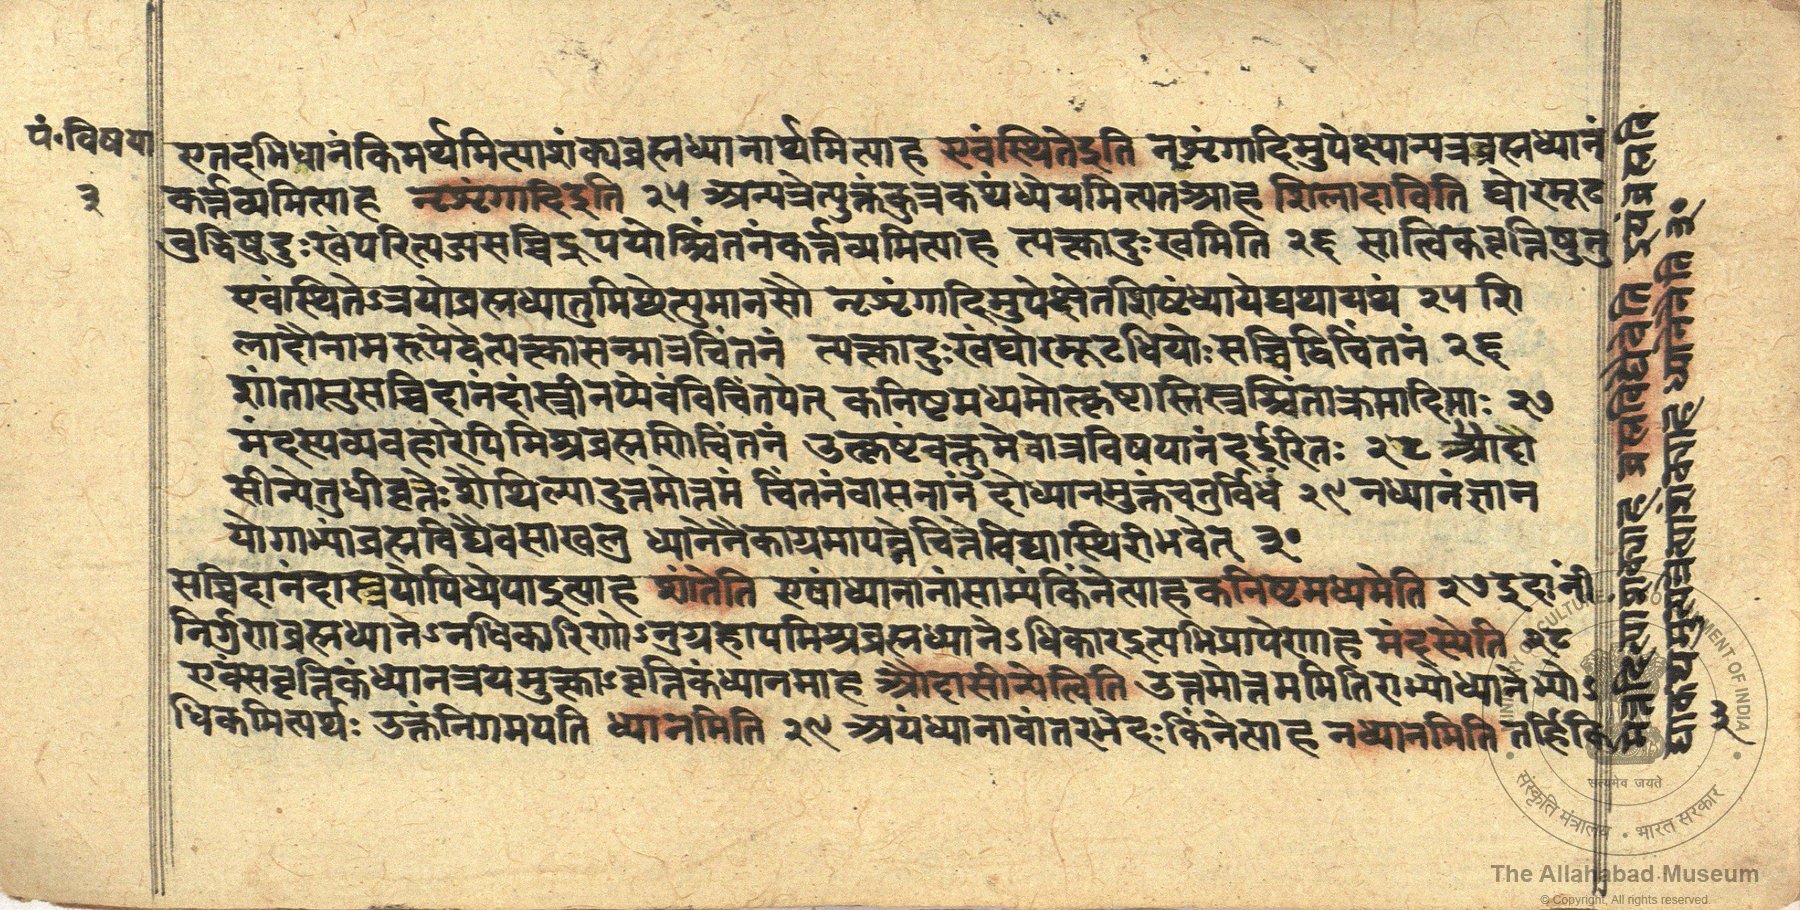 पं॰विषया
३
एतदभिधानंकिमर्थमित्याशंक्यब्रह्मध्यानार्थमित्याह एवंस्थितेइति नृशृंगादिमुपेक्ष्यान्यत्रब्रह्मध्यानं
कर्त्तव्यमित्याह नृशृंगादिइति २५ अन्यत्रेत्युक्तंकुत्रकथंध्येयमित्यतआह शिलादाविति घोरमूढ
बुद्धिषुदुःखंपरित्यज्यसच्चिद्रूपयोश्चिंतनंकर्त्तव्यमित्याह त्यक्त्वादुःखमिति २६ सात्विकवृत्तिषुतु
एवंस्थितेऽत्रयोब्रह्मध्यातुमिच्छेत्पुमानसौ नृशृंगादिमुपेक्षेतशिष्टंध्यायेद्यथायथं २५ शि
लादौनामरूपेद्वेत्यक्त्वासन्मात्रचिंतनं त्यक्त्वादुःखंघोरमूढधियोःसच्चिद्विचिंतनं २६
शांतासुसच्चिदानंदांस्त्रीनप्येवंविचिंतयेत् कनिष्टमध्यमोत्कृष्टास्तिस्त्रश्चिंताक्रमादिमाः २७
मंदस्यव्यवहारेपिमिश्रब्रह्मणिचिंतनं उत्कृष्टंवक्तुमेवात्रविषयानंदईरितः २८ औदा
सीन्येतुधीवृत्तेःशैथिल्यादुत्तमोत्तमं चिंतनंवासनानंदोध्यानमुक्तंचतुर्विधं २९ नध्यानंज्ञान
योगाभ्यांब्रह्मविद्यैवसाखलु ध्यानेनैकाग्र्यमापन्नेचित्तेविद्यास्थिरीभवेत् ३०
सच्चिदानंदास्त्रयोपिध्येयाइत्याह शांतेति एषांध्यानानांसाम्यंकिंनेत्याहकनिष्टमध्यमेति २७ इदानीं
निर्गुणब्रह्मध्यानेऽनधिकारिणोऽनुग्रहायमिश्रब्रह्मध्यानेऽधिकारइत्यभिप्रायेणाह मंदस्येति २८
एवंसवृत्तिकंध्यानत्रयमुक्त्वाऽवृत्तिकंध्यानमाह औदासीन्येत्विति उत्तमोत्तममितिराभ्योध्यानेभ्योऽ
धिकमित्यर्थः उक्तंनिगमयति ध्यानमिति २९ अयंध्यानावांतरभेदःकिंनेत्याह नध्यानमिति तर्हिकि
ब्रह्मविद्यैवेति
३
MINISTRY OF CULTURE GOVERNMENT OF INDIA
सत्यमेव जयते
संस्कृति मंत्रालय • भारत सरकार
The Allahabad Museum
© Copyright, All rights reserved.